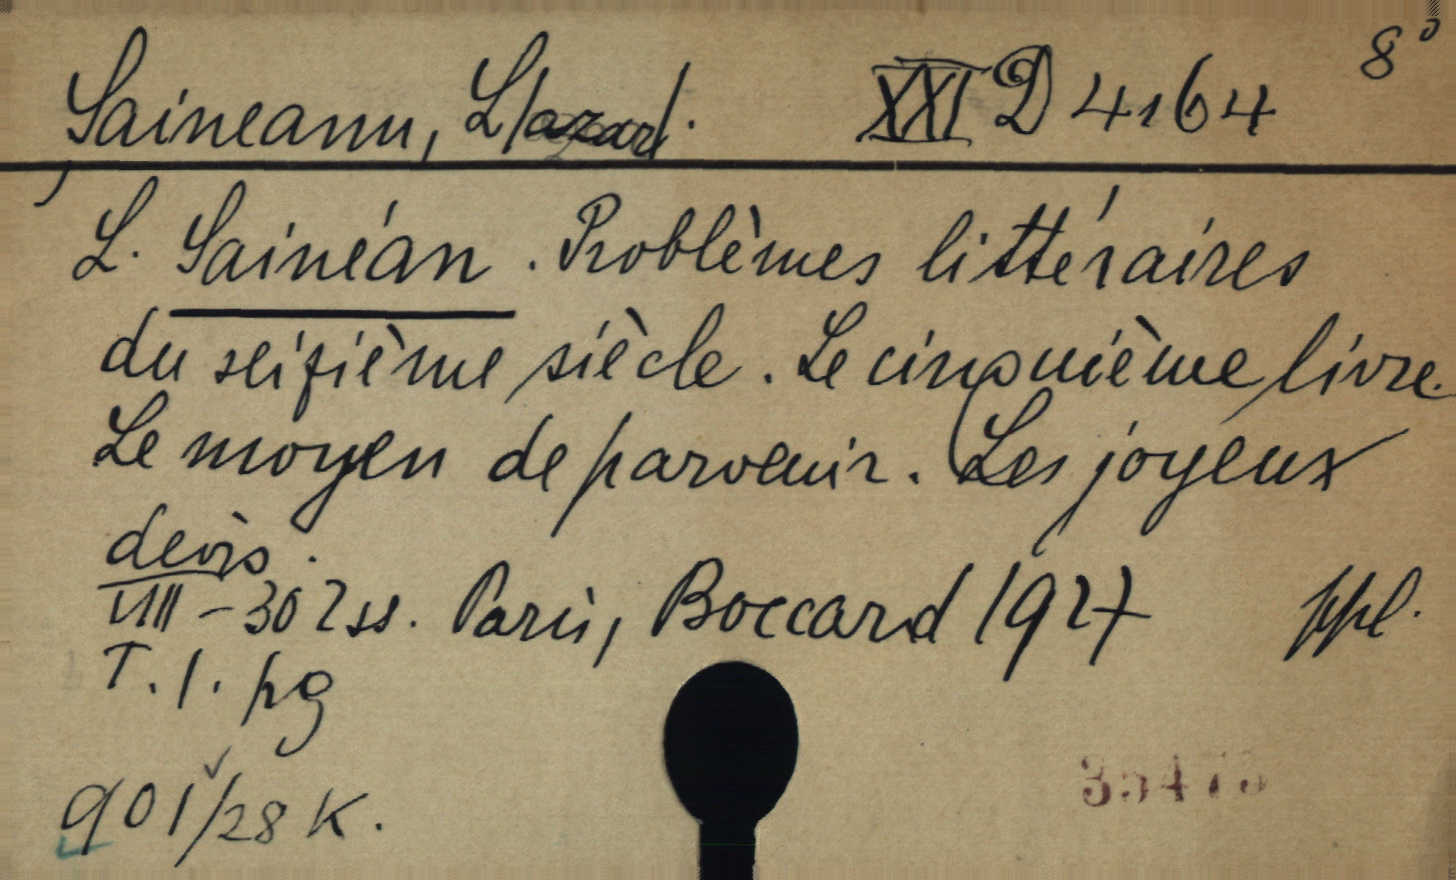 Saineanu, L/azar/. XXI D 4164 8°
L. Sainéan. Problèmes littéraires
du seizième siècle. Le cinquième livre.
Le moyen de parvenir. Les joyeux
devis.
VIII - 302 ss. Paris, Boccard 1927 ppl.
T. 1. pg
901/28 K.